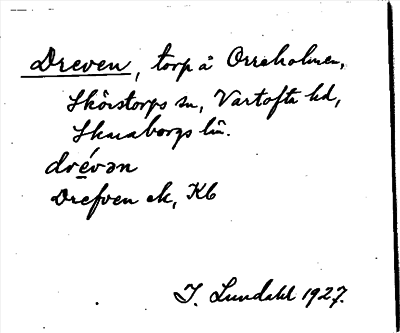 Dreven, torp å Orreholmen,
Skörstorps sn, Vartofta hd,
Skaraborgs län.
drévən
Drefven ek, Kb
I. Lundahl 1927.